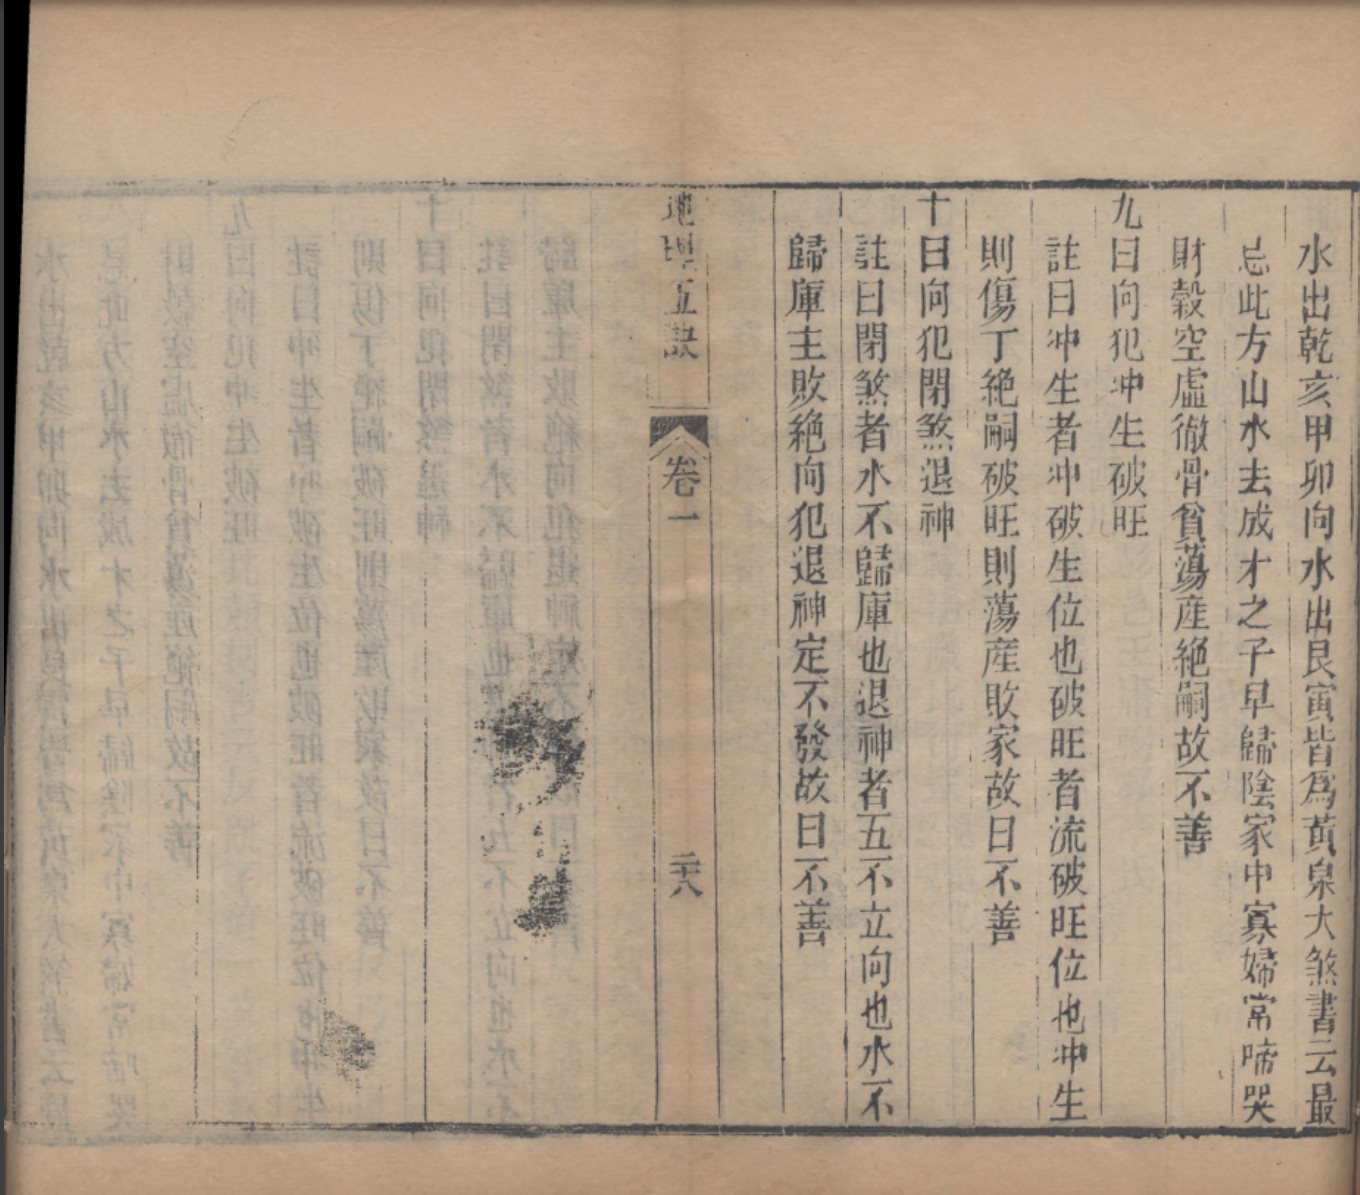 水出乾亥甲卯向水出艮寅皆爲黃泉大煞書云最
忌此方山水去成才之子早歸陰家中寡婦常啼哭
財穀空虛徹骨貧蕩産絶嗣故不善
九曰向犯冲生破旺
註曰冲生者冲破生位也破旺者流破旺位也冲生
則傷丁絶嗣破旺則蕩産敗家故曰不善
十曰向犯閉煞退神
註曰閉煞者水不歸庫也退神者五不立向也水不
歸庫主敗絶向犯退神定不發故曰不善
地理五訣
卷一
二十八